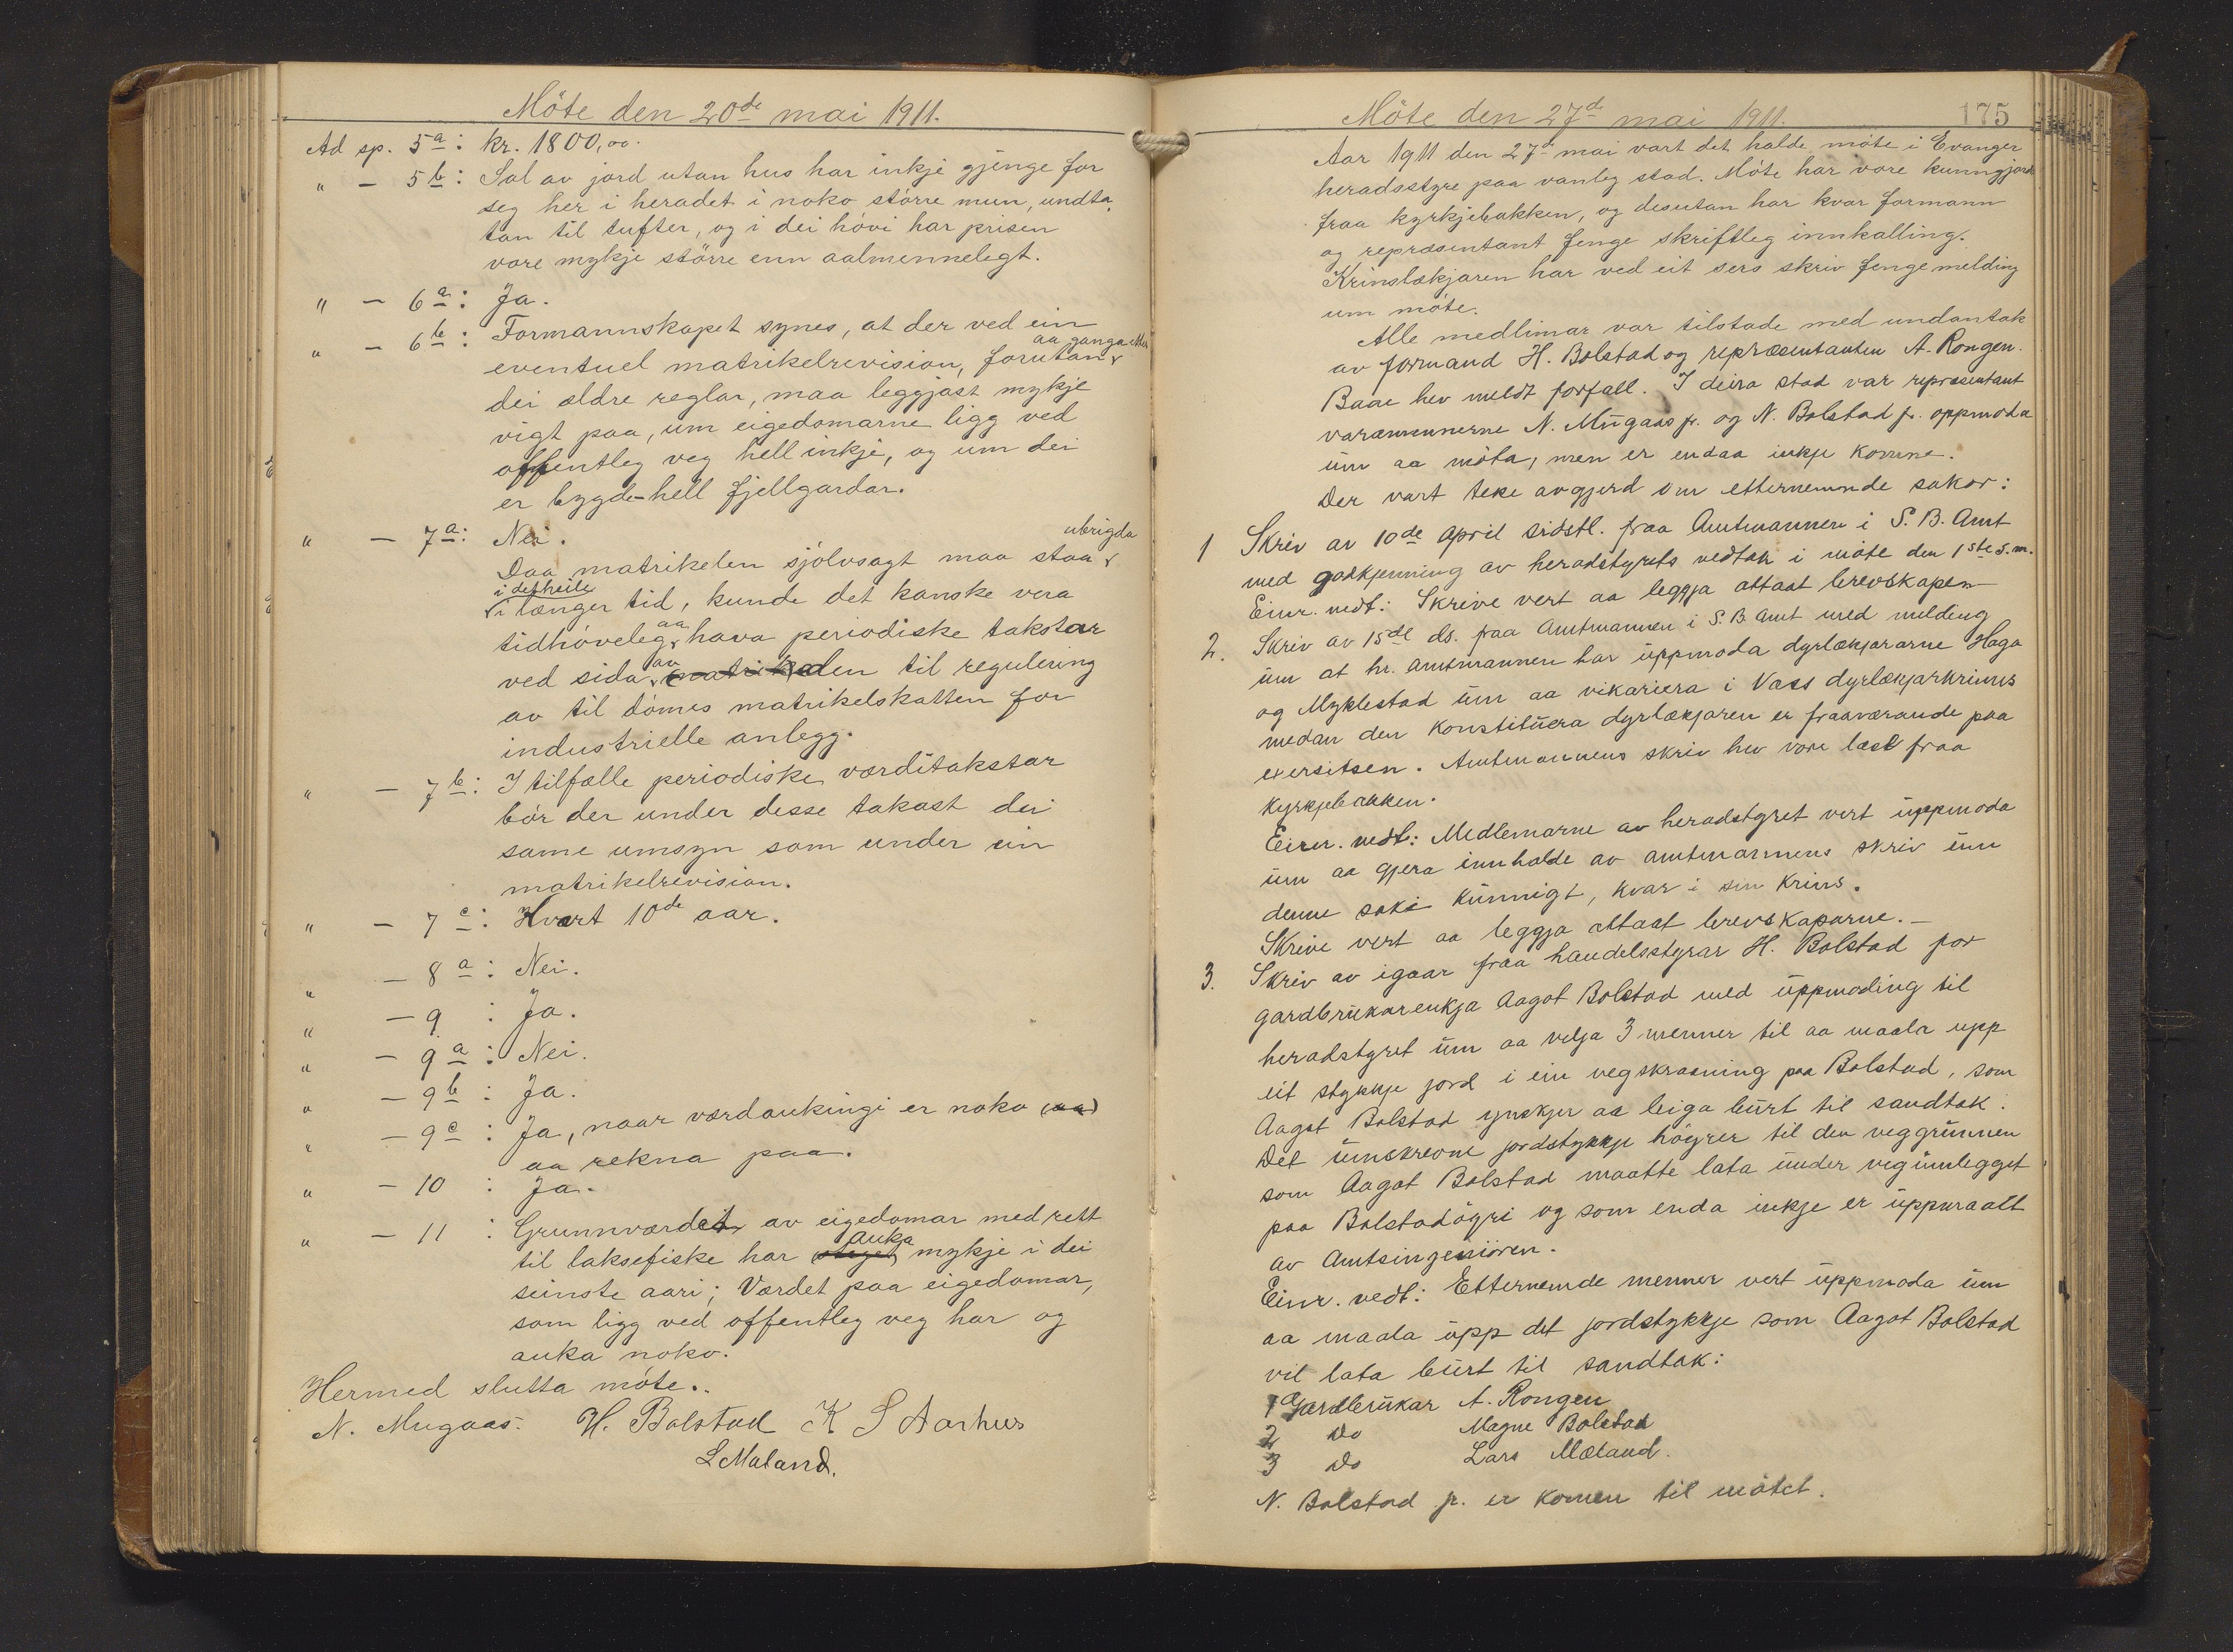 Möte den 20de mai 1911.
Ad sp. 5a: kr. 1800,00.
" — 5b: Sal av jord utan hus har inkje gjenge for
seg her i heradet i noko större mun, undta-
tan til tufter, og i dei hövi har prisen
vore mykje större enn aalmennelegt.
" — 6a: Ja.
" — 6b: Formannskapet synes, at der ved ein
eventuel matrikelrevision, forutan aa ganga etter
dei ældre reglar, maa leggjast mykje
vigt paa, um eigedomarne ligg ved
offentleg veg hell inkje, og um dei
er bygde- hell fjellgardar.
" — 7a: Nei.
Daa matrikelen sjölvsagt maa staa ubrigda
i det heile i længer tid, kunde det kanske vera
tidhöveleg aa hava periodiske takstar
ved sida av matrikelen til regulering
av til dömes matrikelskatten for
industrielle anlegg.
" — 7b: I tilfælle periodiske værditakstar
bör der under desse takast dei
same umsyn som under ein
matrikelrevision.
" — 7c: Hvart 10de aar.
" — 8a: Nei.
" — 9 : Ja.
" — 9a: Nei.
" — 9b: Ja.
" — 9c: Ja, naar værdaukingi er noko (aa)
aa rekna paa.
" — 10 : Ja.
" — 11 : Grunnværdet av eigedomar med rett
til laksefiske har steget auka mykje i dei
seinste aari; Værdet paa eigedomar,
som ligg ved offentleg veg har og
auka noko.
Hermed slutta möte.
N. Mugaas. H. Bolstad K S Aarhus
L Mæland.
Möte den 27d mai 1911. 175
Aar 1911 den 27d mai vart det halde möte i Evanger
heradsstyre paa vanleg stad. Möte har vore kunngjort
fraa kyrkjebakken, og desutan har kvar formann
og repræsentant fenge skriftleg innkalling.
Krinslækjaren har ved eit sers skriv fenge melding
um möte.
Alle medlimar var tilstade med undantak
av formand H. Bolstad og repræsentanten A. Rongen.
Baae hev meldt forfall. I deira stad var repræsentant
varamennerne N. Mügaas jr. og N. Bolstad jr. oppmoda
üm aa möta, men er endaa inkje komne.
Der vart teke avgjerd om etternemnde sakar:
1 Skriv av 10de april sidstl. fraa Amtmannen i S. B. Amt
med godkjenning av heradstyrets vedtak i möte den 1ste s.m.
Einr. vedt: Skrive vert aa leggja attast brevskapen
2. Skriv av 15de ds. fraa Amtmannen i S. B. amt med melding
üm at hr. amtmannen har üppmoda dyrlækjararne Haga
og Myklestad üm aa vikariera i Vass dyrlækjarkrins
medan den konstitüera dyrlækjaren er fraaværande paa
exersitsen. Amtmannens skriv hev vore læst fraa
kyrkjebakken.
Einr. vedt: Medlemarne av heradstyret vert üppmoda
üm aa gjera innhalde av amtmannens skriv üm
denne saki künnigt, kvar i sin krins.
Skrive vert aa leggja attast brevskaparne. —
3. Skriv av igaar fraa handelsstyrar H. Bolstad for
gardbrükarenkja Aagot Bolstad med üppmoding til
heradstyret üm aa velja 3 menner til aa maala upp
eit stykkje jord i ein vegskraaning paa Bolstad, som
Aagot Bolstad ynskjer aa leiga bürt til sandtak.
Det ümskrevne jordstykkje högrer til den veggrünnen
som Aagot Bolstad maatte lata ünder vegümlegget
paa Bolstadögri og som enda inkje er üppmaalt
av Amtsingeniören.
Einr. vedt: Etternemde menner vert üppmoda üm
aa maala üpp det jordstykkje som Aagot Bolstad
vil lata bürt til sandtak:
1 Gardbrükar A. Rongen
2 Do Magne Bolstad
3 Do Lars Mæland.
N. Bolstad jr. er komen til mötet.